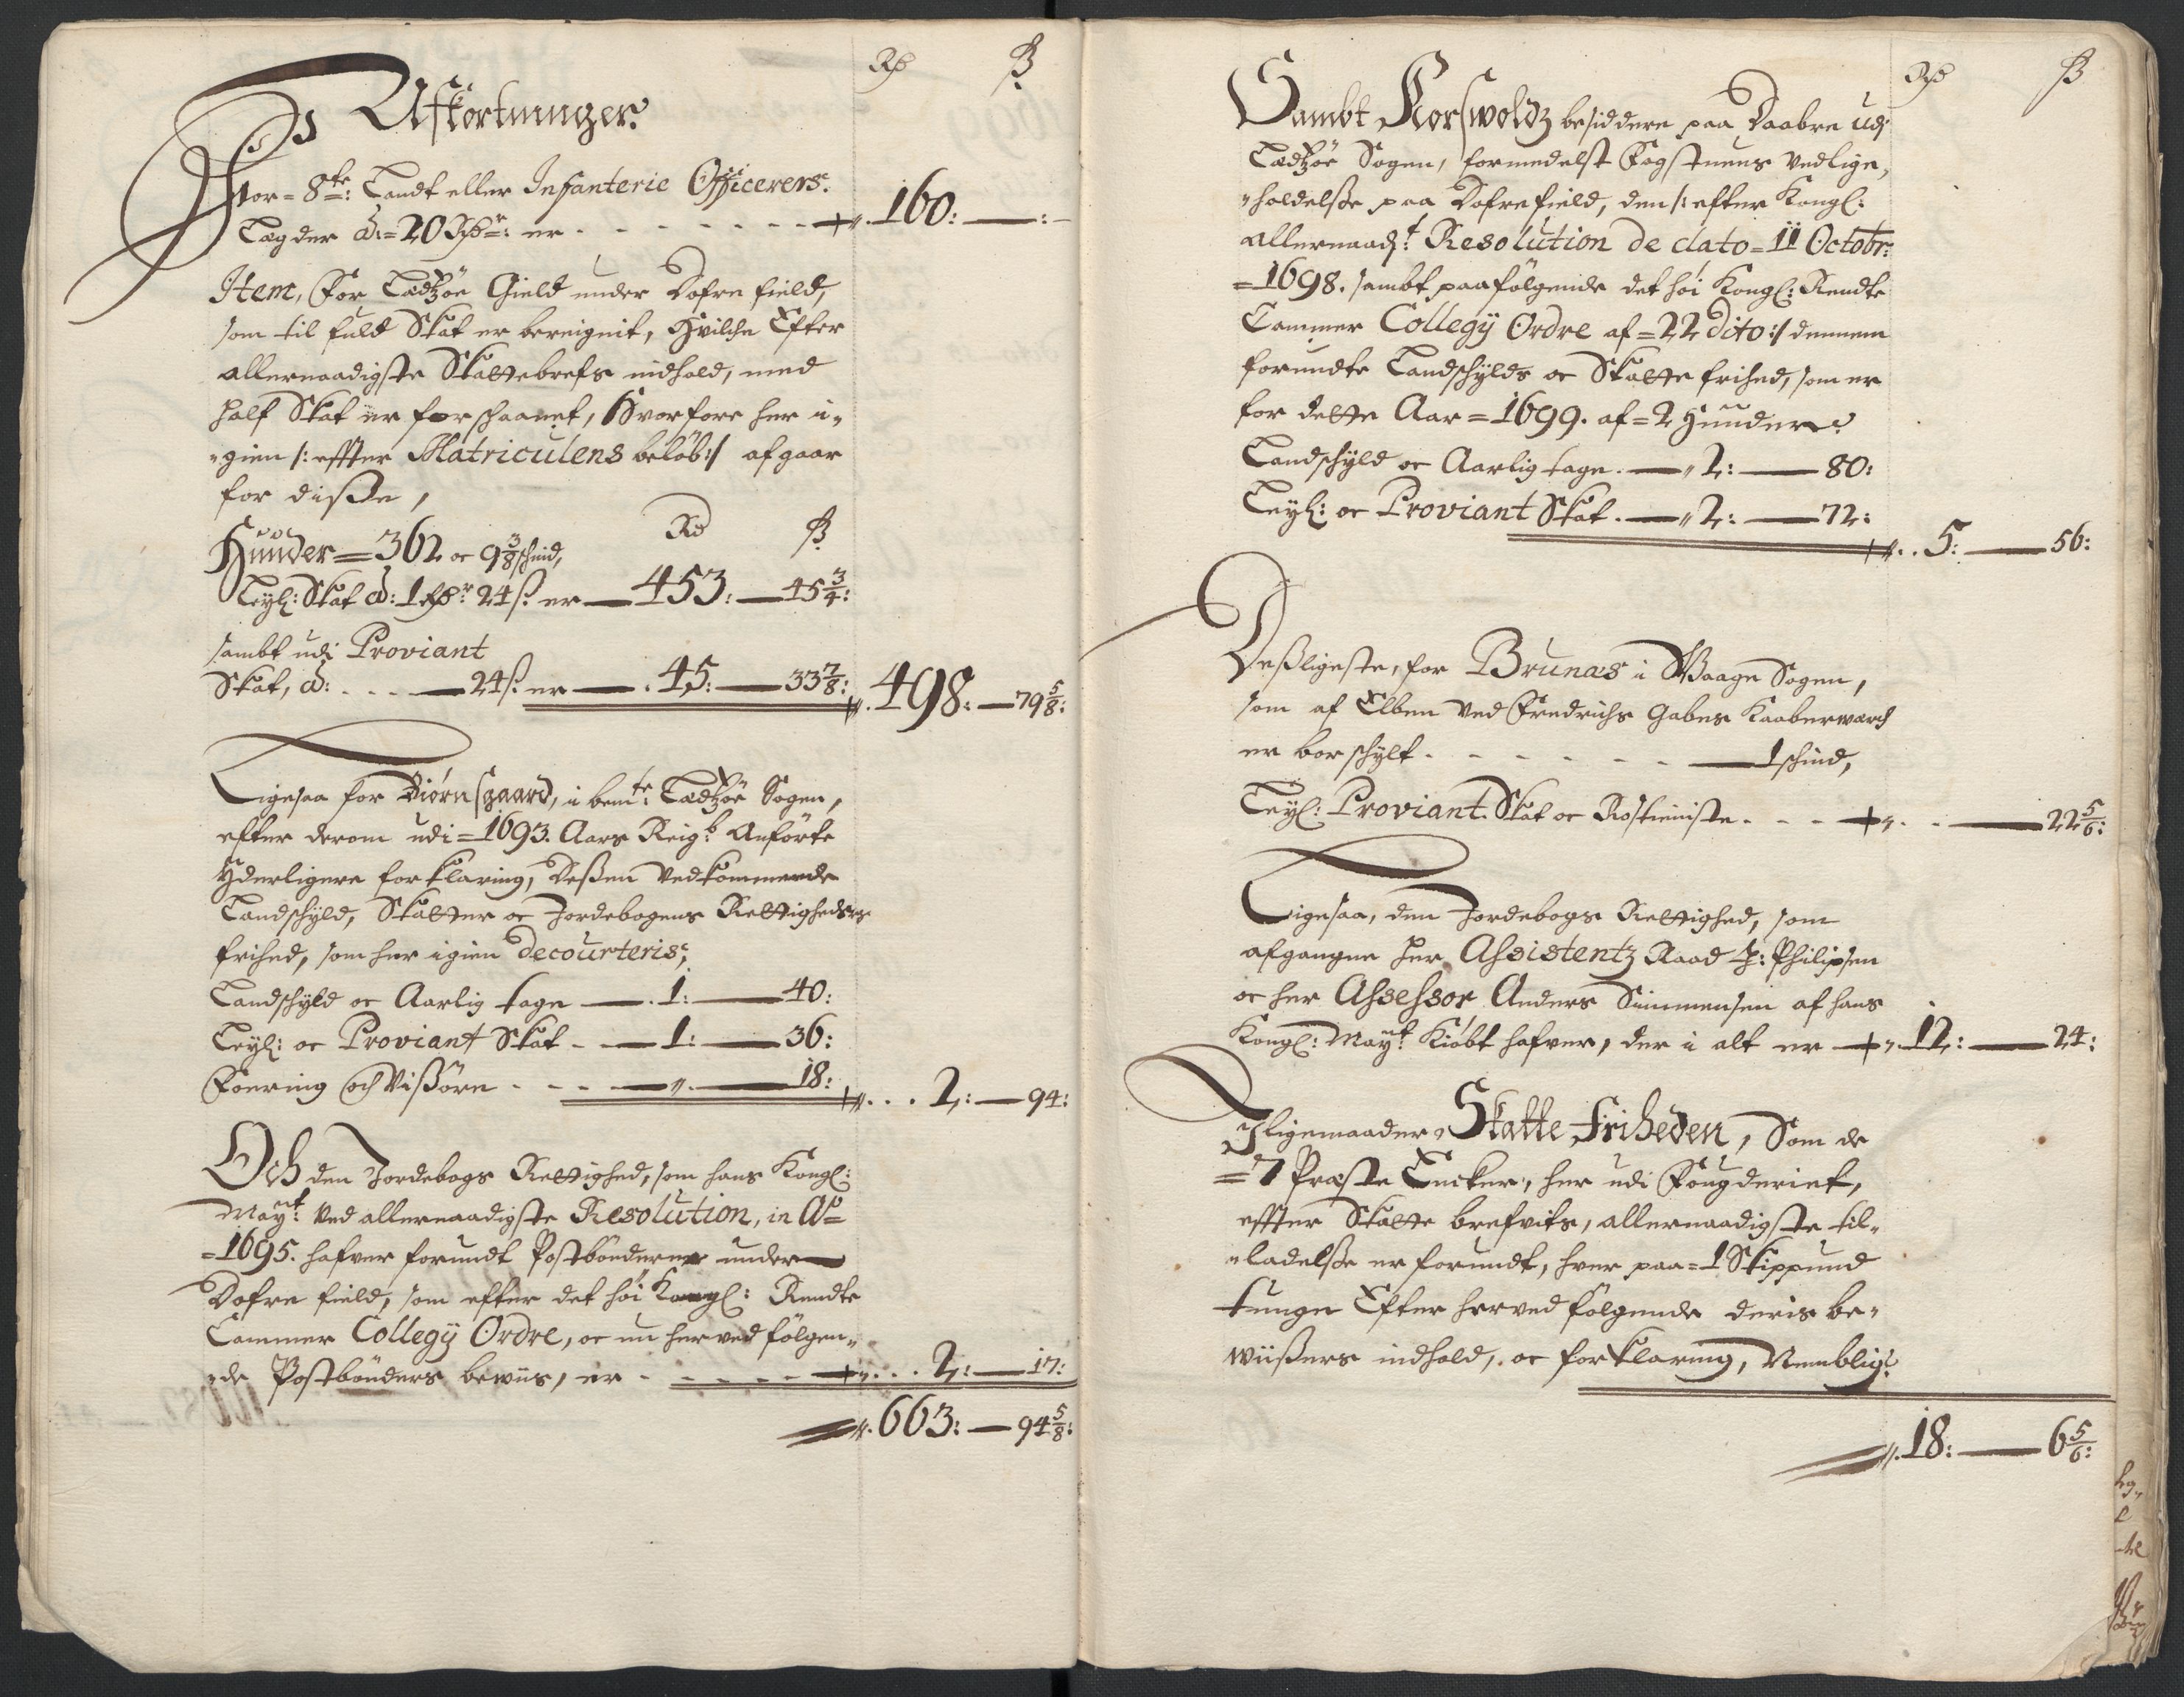 Rdr ß
Afkortninger
For = 8te: Landt eller Infanterie Officerers
Læg der á = 20 Rdr: er - - - - - - - 160: — : —
Item, For Ladszøe Gield under Dofre field,
som til fuld Skat er bereignit, Hvilche Efter
allernaadigste Skattebrefs indhold, med
half Skat er forschaanet, Hvorfore her i-
-gien /: effter Matriculens beløb :/ afgaar
for disse,
Rd ß
Huuder = 362 oc 9 3/8 schind,
Leyl: Skat á: 1 Rdr 24 ß er — 453: — 45 3/4:
sambt udi Proviant
Skat, á: - - - — 24 ß er — 45: — 33 7/8: 498: — 79 5/8:
Ligesaa for Biørnsgaard, i bemte: Ladszøe Sogen,
efter derom udi = 1693. Aars Reigb: Anførte
Yderligere forklaring, Dessen Vedkommende
Landschyld, Skatter oc Jordebogens Rettigheders
frihed, som her igien decourteris,
Landschyld oc Aarlig tage — 1: — 40:
Leyl: oc Proviant Skat - — 1: — 36:
Foering och Wissøre - - - — „ — 18: . . . 2: — 94:
Och den Jordebogs Rettighed, som hans Kongl:
Mayt: Ved allernaadigste Resolution, in Ao =
= 1695. hafver forundt Postbønderne under
Dofre field, som efter det høi Kongl: Rendte
Cammer Collegij Ordre, oc nu herved følgen-
-de Postbønders bewiis, er - - - - - . . . 2: — 17:
663: — 94 5/8:
Rdr ß
Sambt Korswoldz besiddere paa Daabre udj
Ladszøe Sogen, formedelst Fogstuens Vedlige-
-holdelsse paa Dofrefield, den /: efter Kongl:
allernaadt: Resolution de dato = 11 Octobr:
= 1698. sambt paafølgende det høi Kongl: Rendte
Cammer Collegij Ordre af = 22 dito :/ dennem
forundte Landschylds oc Skatte frihed, som er
for dette Aar = 1699. af = 2 Huuder
Landschyld oc Aarlig tage. — „ 2: — 80:
Leyl: oc Proviant Skat. — „ 2: — 72:
. . 5: — 56:
Desligeste, for Brunæs i Waage Sogen,
som af Elben Ved Fredrichs Gabes Kaaberwærch
er bortschylt - - - - - - — 1 schind,
Leyl: Proviant Skat oc Rostieniste - - - — 22 5/6:
Ligesaa, den Jordebogs Rettighed, som
afgangne Her Assistentz Raad P: Philipsen
oc her Assessor Anders Simmensen af hans
Kongl: Mayt: Kiøbt hafver, der i alt er — 12: — 24:
Iligemaader, Skatte Friheden, Som de
= 7 Præste Encker, her udi Fougderiet,
effter Skatte brefvits, allernaadigste til-
-ladelsse er forundt, hver paa = 1 Skippund
tunge Efter herved følgende deris be-
wiissers indhold, oc forklaring, Nemblig:
18: — 6 5/6: